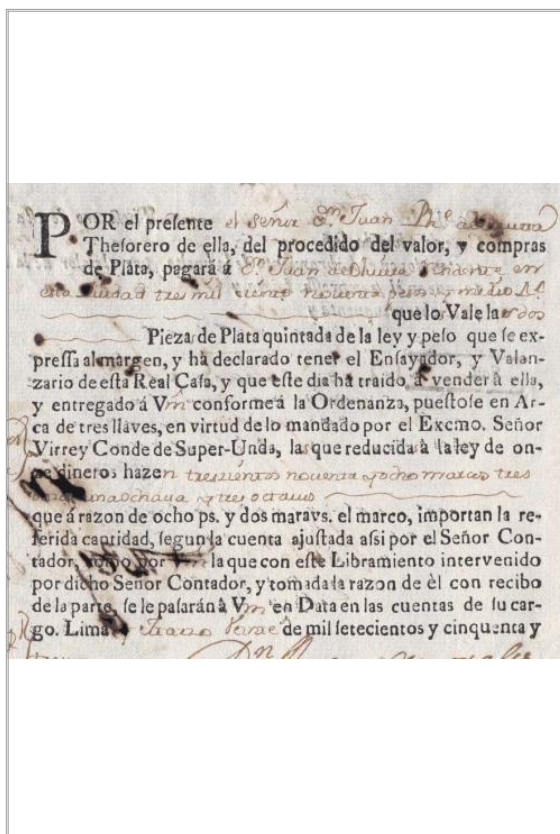 POR el presente el Señor Dn. Juan
Thesorero de ella, del procedido del valor, y compras
de Plata, pagará á Dn. Juan en
esta Ciudad tres mil ciento noventa pesos y medio Rl.
que lo Vale la dos
Pieza de Plata quintada de la ley y peso que se ex-
pressa al margen, y há declarado tener el Ensayador, y Valan-
zario de esta Real Casa, y que este dia há traido, á vender á ella,
y entregado á Vm conforme á la Ordenanza, puestose en Ar-
ca de tres llaves, en virtud de lo mandado por el Excmo. Señor
Virrey Conde de Super-Unda, las que reducida á la ley de on-
ze dineros hazen trescientos noventa y ocho marcos tres
una ochava y tres octavos
que á razon de ocho ps. y dos maravs. el marco, importan la re-
ferida cantidad, segun la cuenta ajustada assi por el Señor Con-
tador, como por Vm la que con este Libramiento intervenido
por dicho Señor Contador, y tomada la razon de èl con recibo
de la parte, se le pasarán á Vm en Data en las cuentas de su car-
go. Lima de mil setecientos y cinquenta y